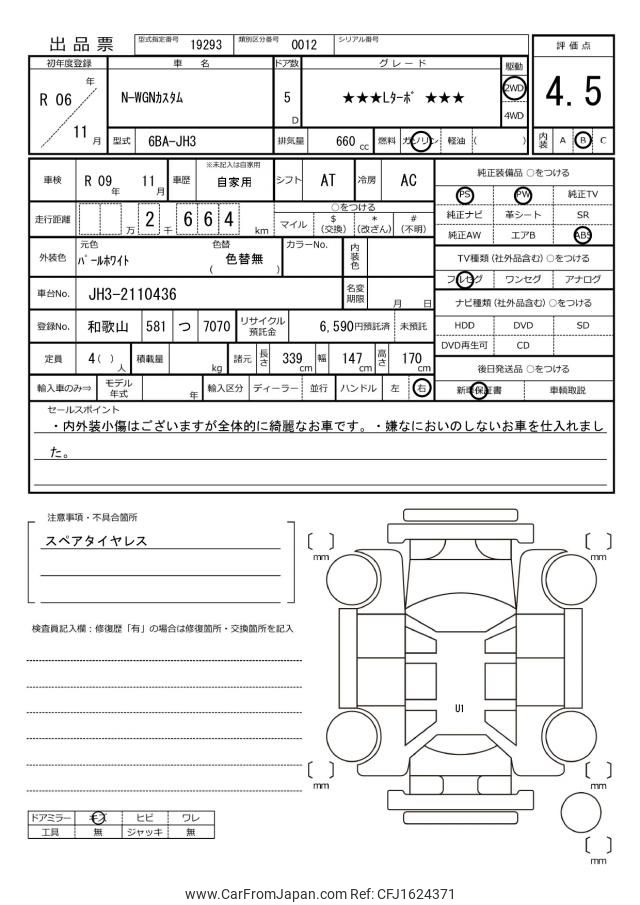 出品票 型式指定番号 19293 類別区分番号 0012 シリアル番号
評価点
4.5
内装 A B C
初年度登録 車名 ドア数 グレード 駆動
R 06 年 11 月
N-WGNカスタム 5 D ★★★Lターボ ★★★ 2WD
4WD
型式 6BA-JH3 排気量 660 cc 燃料 ガソリン 軽油 ( )
車検 R 09 年 11 月 車歴 ※未記入は自家用 自家用 シフト AT 冷房 AC
走行距離 万 2 千 6 6 4 km
○をつける
マイル $ (交換) * (改ざん) # (不明)
外装色 元色 パールホワイト 色替 ( 色替無 ) カラーNo. 内装色
車台No. JH3-2110436 名変期限 月 日
登録No. 和歌山 581 つ 7070 リサイクル預託金 6,590円預託済 未預託
定員 4( ) 人 積載量 kg 諸元 長さ 339 cm 幅 147 cm 高さ 170 cm
輸入車のみ⇒ モデル年式 年 輸入区分 ディーラー 並行 ハンドル 左 右
純正装備品 ○をつける
PS PW 純正TV
純正ナビ 革シート SR
純正AW エアB ABS
TV種類 (社外品含む) ○をつける
フルセグ ワンセグ アナログ
ナビ種類 (社外品含む) ○をつける
HDD DVD SD
DVD再生可 CD
後日発送品 ○をつける
新車保証書 車輌取説
セールスポイント
・内外装小傷はございますが全体的に綺麗なお車です。・嫌なにおいのしないお車を仕入れまし
た。
注意事項・不具合箇所
スペアタイヤレス
検査員記入欄：修復歴「有」の場合は修復箇所・交換箇所を記入
mm
mm
U1
mm
mm
mm
ドアミラー キズ ヒビ ワレ
工具 無 ジャッキ 無
www.CarFromJapan.com Ref: CFJ1624371